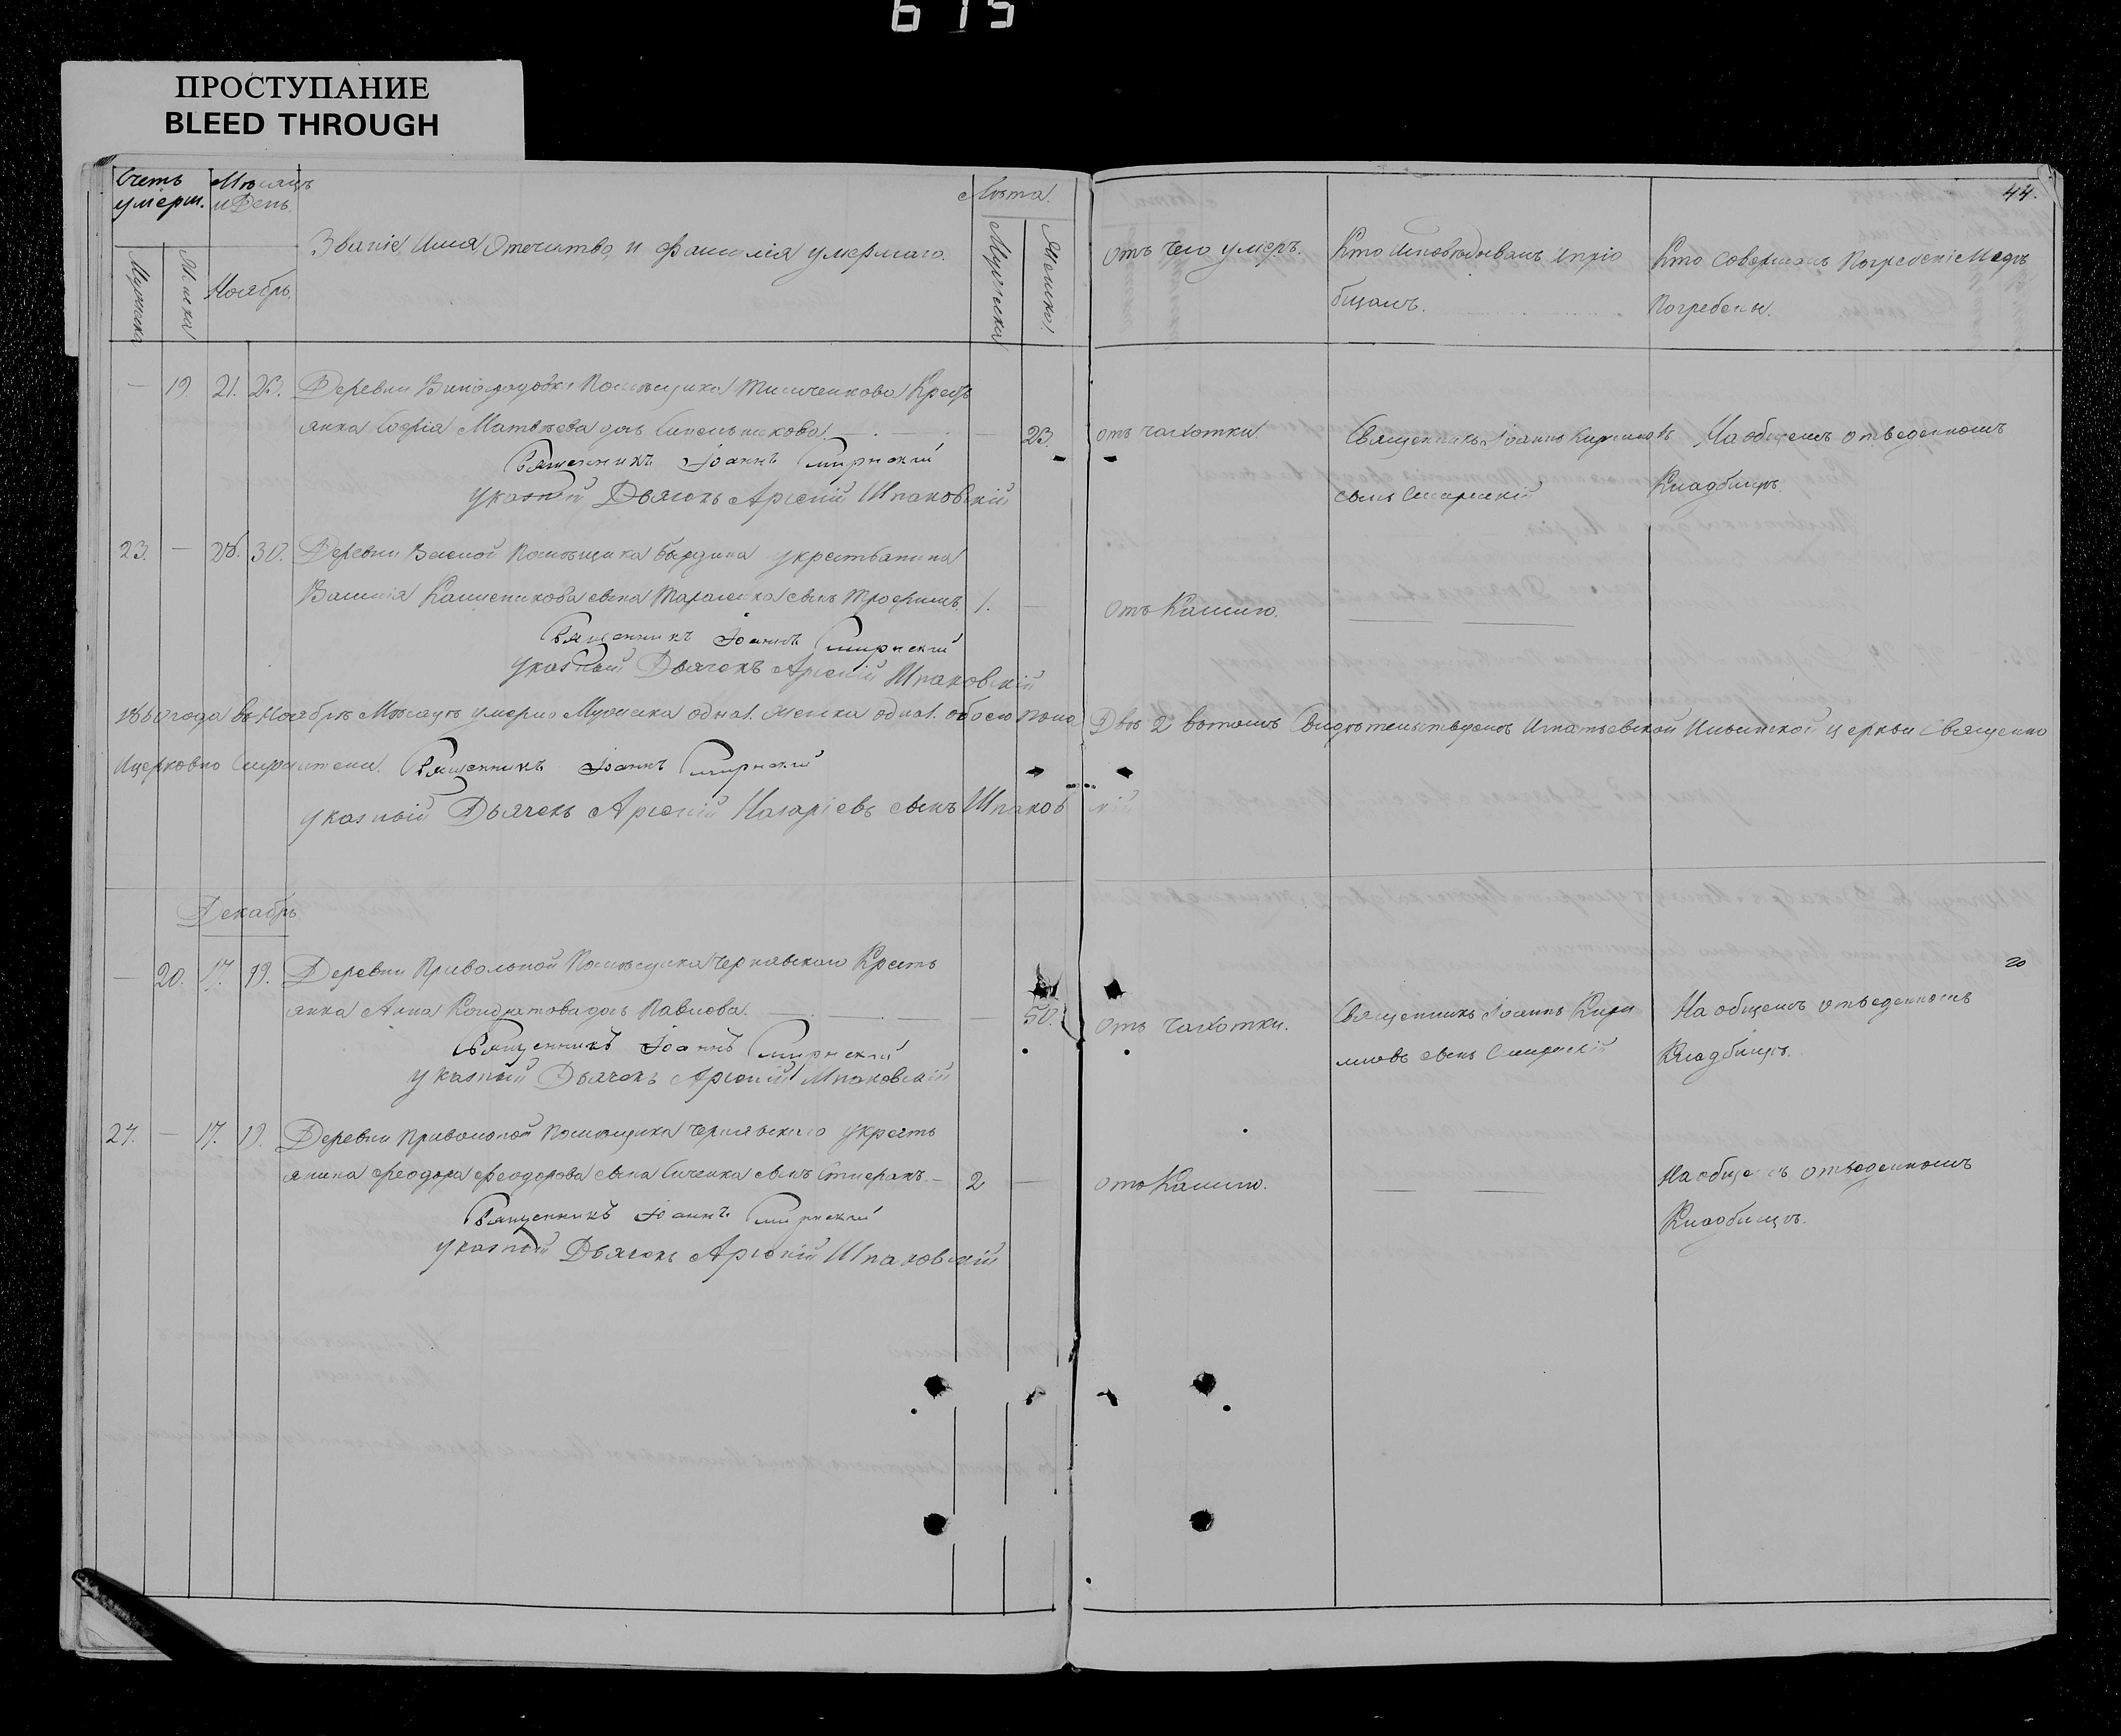 615
ПРОСТУПАНИЕ
BLEED THROUGH
Счетъ умерш.
Мѣсяцъ и День.
Лѣта.
44.
Мужеска
Женска
Ноябрь.
Званіе, Имя, Отечество, и фамилія умершаго.
Мужеска
Женска
Отъ чего умеръ.
Кто Исповѣдывалъ Ипріо
бщалъ.
Кто Совершалъ Погребеніе Игдѣ
Погребены.
— 19 21. 23. Деревни Виноградовки Помѣщика Крестъ
янка Софія Матвѣева дочь 23. отъ чахотки. Священникъ Іоаннъ Кириловъ На общемъ отведенномъ
Священникъ Іоаннъ Смирнский
сынъ Кладбищѣ.
указный Дьячокъ Арсеній Шпаковскій
23. — 28. 30. Деревни Помѣщика укрестьанина
сына сынъ Трофимъ 1. — Отъ Кашлю.
Священникъ Іоаннъ Смирнский
указный Дьячекъ Арсеній Шпаковскій
1860 года въ Ноябрѣ Мѣсяцѣ умерло Мужеска одна 1. Женска одна 1. обоего пола Двѣ 2 вътомъ Свидѣтельствуемъ Игнатьевской Ильинской церкви Священно
Ицерковно Служители. Священникъ Іоаннъ Смирнский
указный Дьячекъ Арсеній Назаріевъ сынъ Шпаковскій
Декабрь
— 20. 17. 19. Деревни Привольной Помѣщика Чернявскаго Кресть
янка Анна Кондратова дочь Павлова. 50. Отъ чахотки. Священникъ Іоаннъ Кири На общемъ отведенномъ
20
Священникъ Іоаннъ Смирнский
ловъ сынъ Смирнскій Кладбищѣ.
указный Дьячокъ Арсеній Шпаковскій
24. — 17. 19. Деревни Привольной Помѣщика Чернявскаго укресть
янина Феодора Феодорова сына сынъ 2 — отъ Кашлю. На общемъ отведенномъ
Священникъ Іоаннъ Смирнский
Кладбищѣ.
указный Дьячокъ Арсеній Шпаковскій